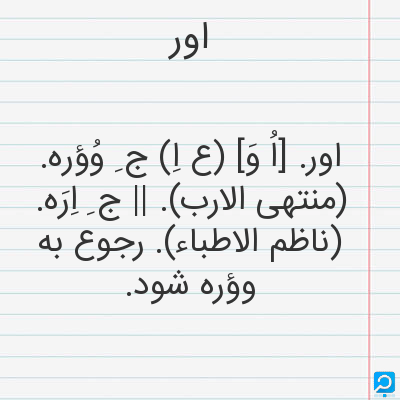 اور
اور. [اُ وَ] (ع اِ) ج ِ وُؤره.
(منتهی الارب). || ج ِ اِرَه.
(ناظم الاطباء). رجوع به
وؤره شود.